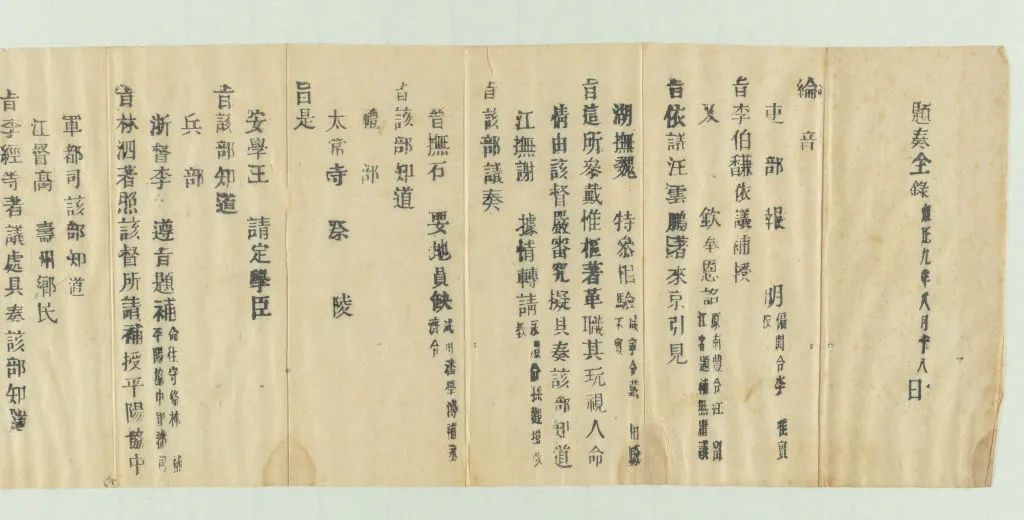 題奏全錄 雍正九年八月十八日
綸音
吏部 報明 偏關令李 在實
旨李伯馦依議補授
又 欽奉恩詔 原南豊令汪 江
旨依議汪雲鵬著來京引見
湖撫魏 特叅相驗 咸寧令戴 相驗不實
旨這所參戴惟樞著革職其玩視人命
情由該督嚴審究擬具奏該部知道
江撫謝 據情轉請
旨該部議奏
晋撫石 要地員缺
旨該部知道
禮部
太常寺 祭陵
旨是
安學王 請定學臣
旨該部知道
兵部
浙督李 遵旨題補 平陽協中軍
旨林泗著照該督所請補授平陽協中
軍都司該部知道
江督高 壽州鄉民
旨李經等著議處具奏該部知道